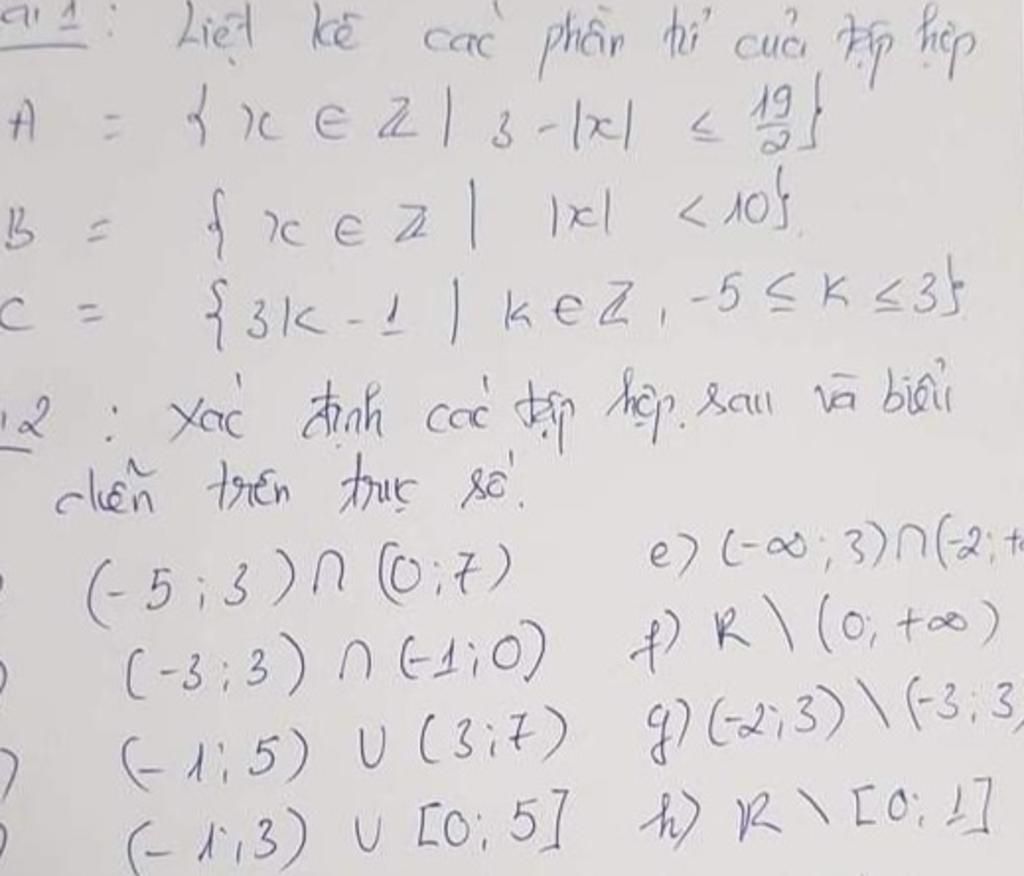 1 : Liệt kê các phần tử của tập hợp
A = { x ∈ Z | 3 - |x| ≤ 19/2 }
B = { x ∈ Z | |x| < 10 }
C = { 3k - 1 | k ∈ Z, -5 ≤ k ≤ 3 }
2 : Xác định các tập hợp sau và biểu
diễn trên trục số.
(-5; 3) ∩ (0; 7) e) (-∞; 3) ∩ (-2; +
(-3; 3) ∩ (-1; 0) f) R \ (0; +∞)
(-1; 5) ∪ (3; 7) g) (-2; 3) \ (-3; 3
(-1; 3) ∪ [0; 5] h) R \ [0; 1]